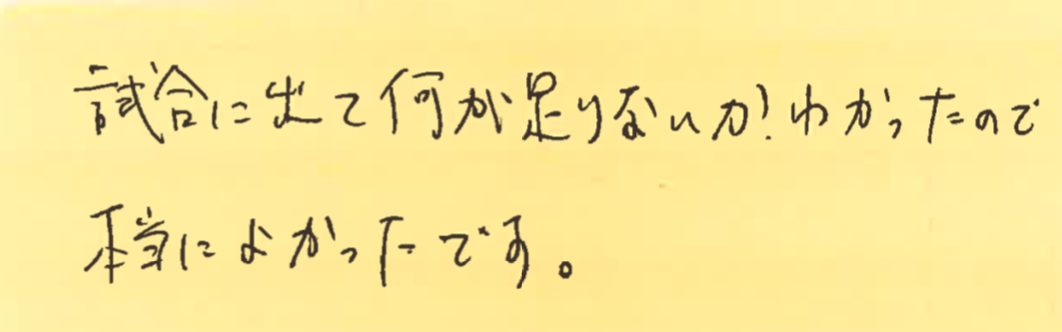 試合に出て何が足りないかわかったので
本当によかったです。